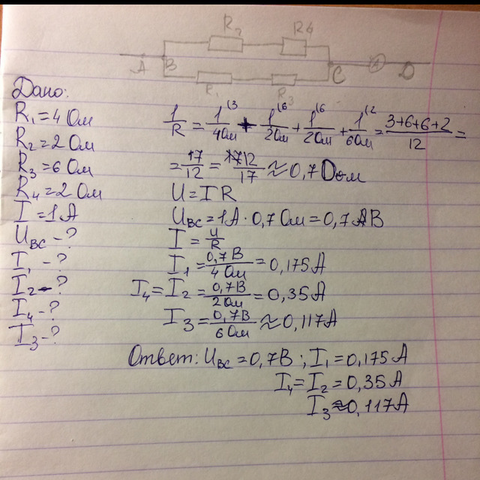 R₂ R4
A B R₁ R₃ C A D
Дано:
R₁=4 Ом
R₂=2 Ом
R₃=6 Ом
R₄=2 Ом
I=1 A
U_BC-?
I₁-?
I₂-?
I₄-?
I₃-?
1/R = 1^(3/4 Ом + 1^(6/2 Ом + 1^(6/2 Ом + 1^(2/6 Ом = 3+6+6+2/12 =
= 17/12 = 12/17 ≈ 0,7 Ом
U=IR
U_BC=1A·0,7 Ом=0,7 В
I=U/R
I₁=0,7 В/4 Ом=0,175 A
I₄=I₂=0,7 В/2 Ом=0,35 A
I₃=0,7 В/6 Ом≈0,117 A
Ответ: U_BC=0,7 В; I₁=0,175 A
I₄=I₂=0,35 A
I₃≈0,117 A